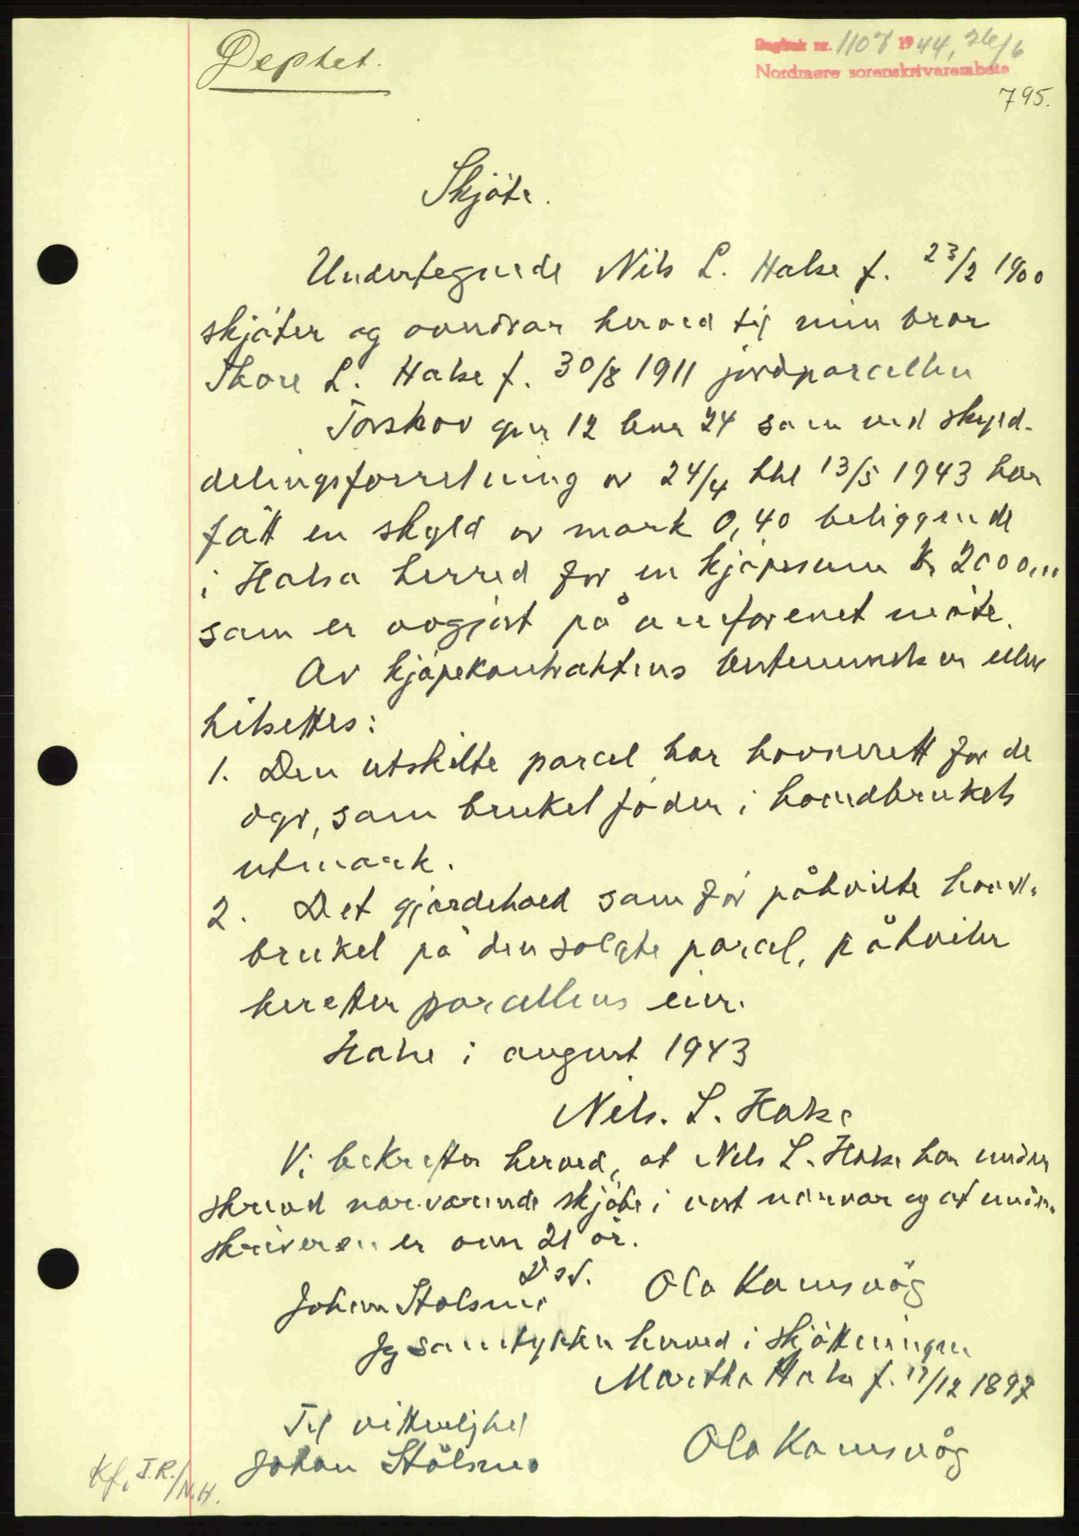 Dagbok nr. 1107 1944, 26/6
Nordmøre sorenskrivarembete
Deptet.
795.
Skjøte.
Undertegnede Nils L. Halse f. 23/2 1900
skjøter og overdrar herved til min bror
Thore L. Halse f. 30/8 1911 jordparcellen
Torskov gnr 12 bnr 24 som ved skyld-
delingsforretning av 24/4 thl 13/5 1943 har
fått en skyld av mark 0,40 beliggende
i Halsa herred for en kjøpesum kr 2000,..
som er avgjort på omforenet måte.
Av kjøpekontraktens bestemmelser
hitsettes:
1. Den utskilte parcel har havnerett for de
dyr, som bruket föder i hovedbrukets
utmark.
2. Det gjerdehold som för påhvilte hoved-
bruket på den solgte parcel, påhviler
herefter parcellens eier.
Halse i august 1943
Nils. L. Halse
Vi bekrefter herved, at Nils L. Halse har under
skrevet nærværende skjøte i vort nærvær og at under-
skriveren er over 21 år.
D.s.
Johan Stölsmo Ola Kamsvåg
Jeg samtykker herved i skjøtningen
Martha Halse f. 17/12 1897
Til vitterlighet
Johan Stölsmo Ola Kamsvåg
Kf. I.R./N.H.